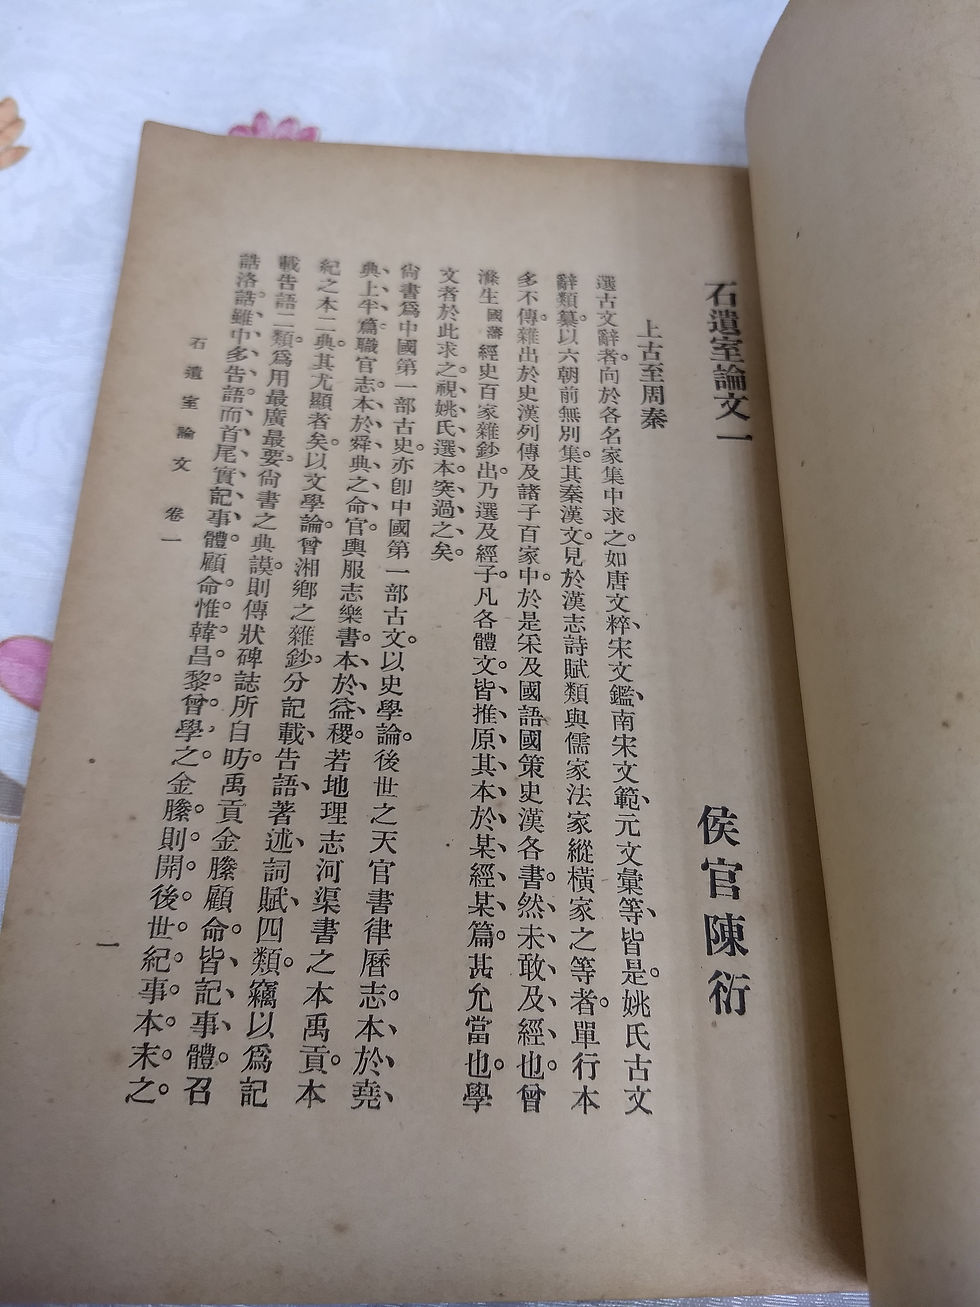 石遺室論文一
侯官陳衍
上古至周秦
選古文辭者。向於各名家集中求之。如唐文粹、宋文鑑、南宋文範、元文彙等、皆是。姚氏古文
辭類纂。以六朝前無別集。其秦漢文。見於漢志詩賦類與儒家法家縱橫家之等者。單行本
多不傳。雜出於史漢列傳及諸子百家中。於是采及國語國策史漢各書。然、未、敢、及、經、也。曾
滌生國藩經史百家雜鈔出。乃選及經子。凡各體文。皆、推、原、其、本、於、某、經、某、篇。甚允當也。學
文者於此求之。視、姚、氏、選、本、突、過、之、矣。
尙書爲中國第一部古史。亦卽中國第一部古文。以史學論。後世之天官書律曆志。本、於、堯、
典、上、半、篇、職官志、本、於、舜、典、之、命、官。輿服志樂書。本、於、益、稷。若地理志河渠書之本禹貢。本
紀之本二典。其尤顯者矣。以文學論。曾湘鄕之雜鈔。分記載、告語、著述、詞賦、四類。竊以爲記
載告語二類。爲用最廣最要。尙書之典謨。則傳狀碑誌所自昉。禹貢金縢顧命。皆、記、事、體。召
誥洛誥。雖、中、多、告、語、而、首、尾、實、記、事、體。顧命惟韓昌黎曾學之。金縢則開後世紀事本末之。
石遺室論文 卷一
一